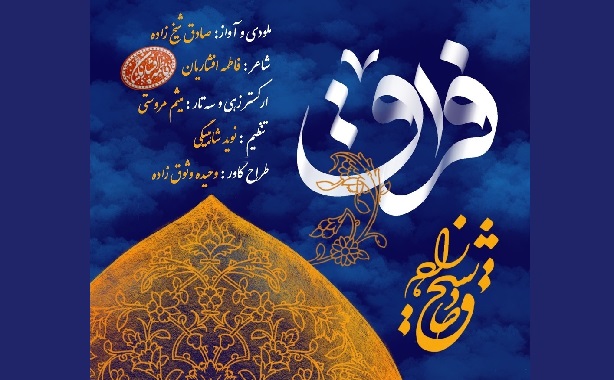 ملودی و آواز : صادق شیخ زاده
شاعر : فاطمه افشاریان
ارکستر زهی و سه تار : میثم مروستی
تنظیم : نوید شانیکی
طراح کاور : وحیده وثوق زاده
فراق
صادق شیخ زاده